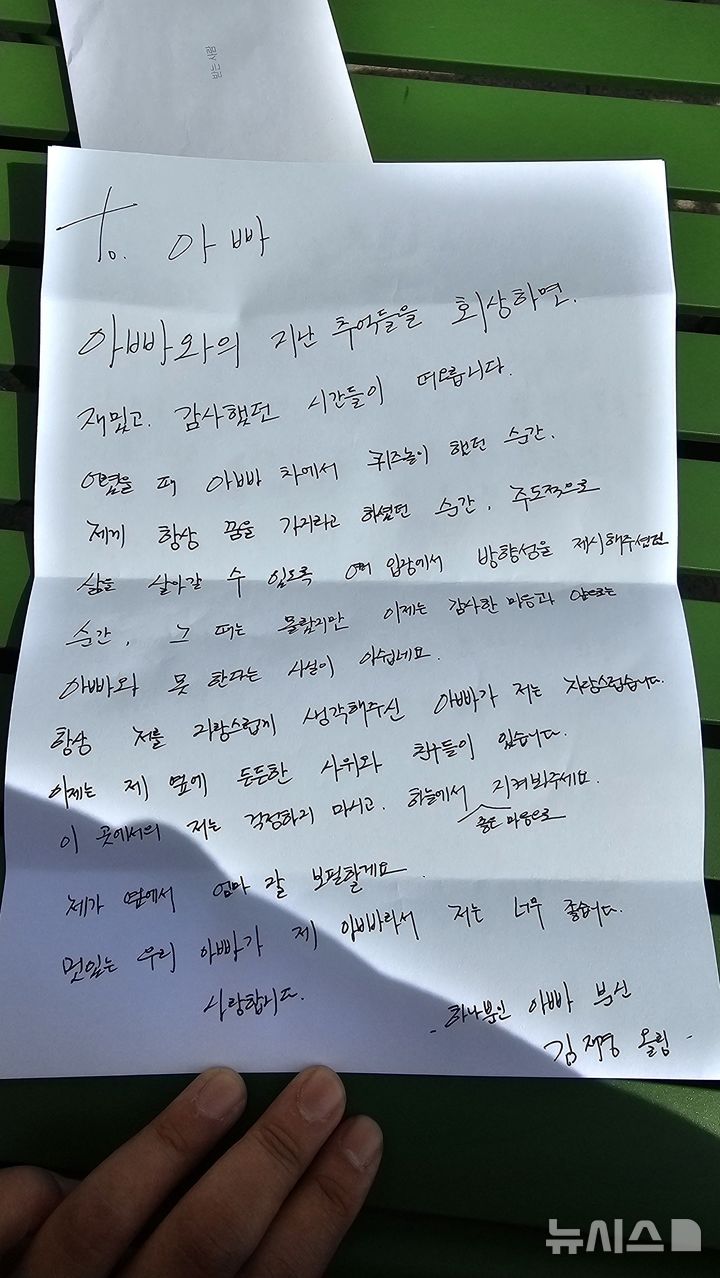 받는사람
to. 아빠
아빠와의 지난 추억들을 회상하면.
재밌고. 감사했던 시간들이 떠오릅니다.
어렸을 때 아빠 차에서 퀴즈놀이 했던 순간.
제게 항상 꿈을 가지라고 하셨던 순간, 주도적으로
삶을 살아갈 수 있도록 여러 입장에서 방향성을 제시해주셨던
순간, 그 때는 몰랐지만 이제는 감사한 마음과 앞으로는
아빠와 못 한다는 사실이 아쉽네요.
항상 저를 자랑스럽게 생각해주신 아빠가 저는 자랑스럽습니다.
이제는 제 옆에 든든한 사위와 친구들이 있습니다.
이 곳에서의 저는 걱정하지 마시고. 하늘에서 지켜봐주세요.
좋은 마음으로
제가 옆에서 엄마 잘 보필할게요.
멋있는 우리 아빠가 제 아빠라서 저는 너무 좋습니다.
사랑합니다.
- 하나뿐인 아빠
김 올림 -
뉴시스